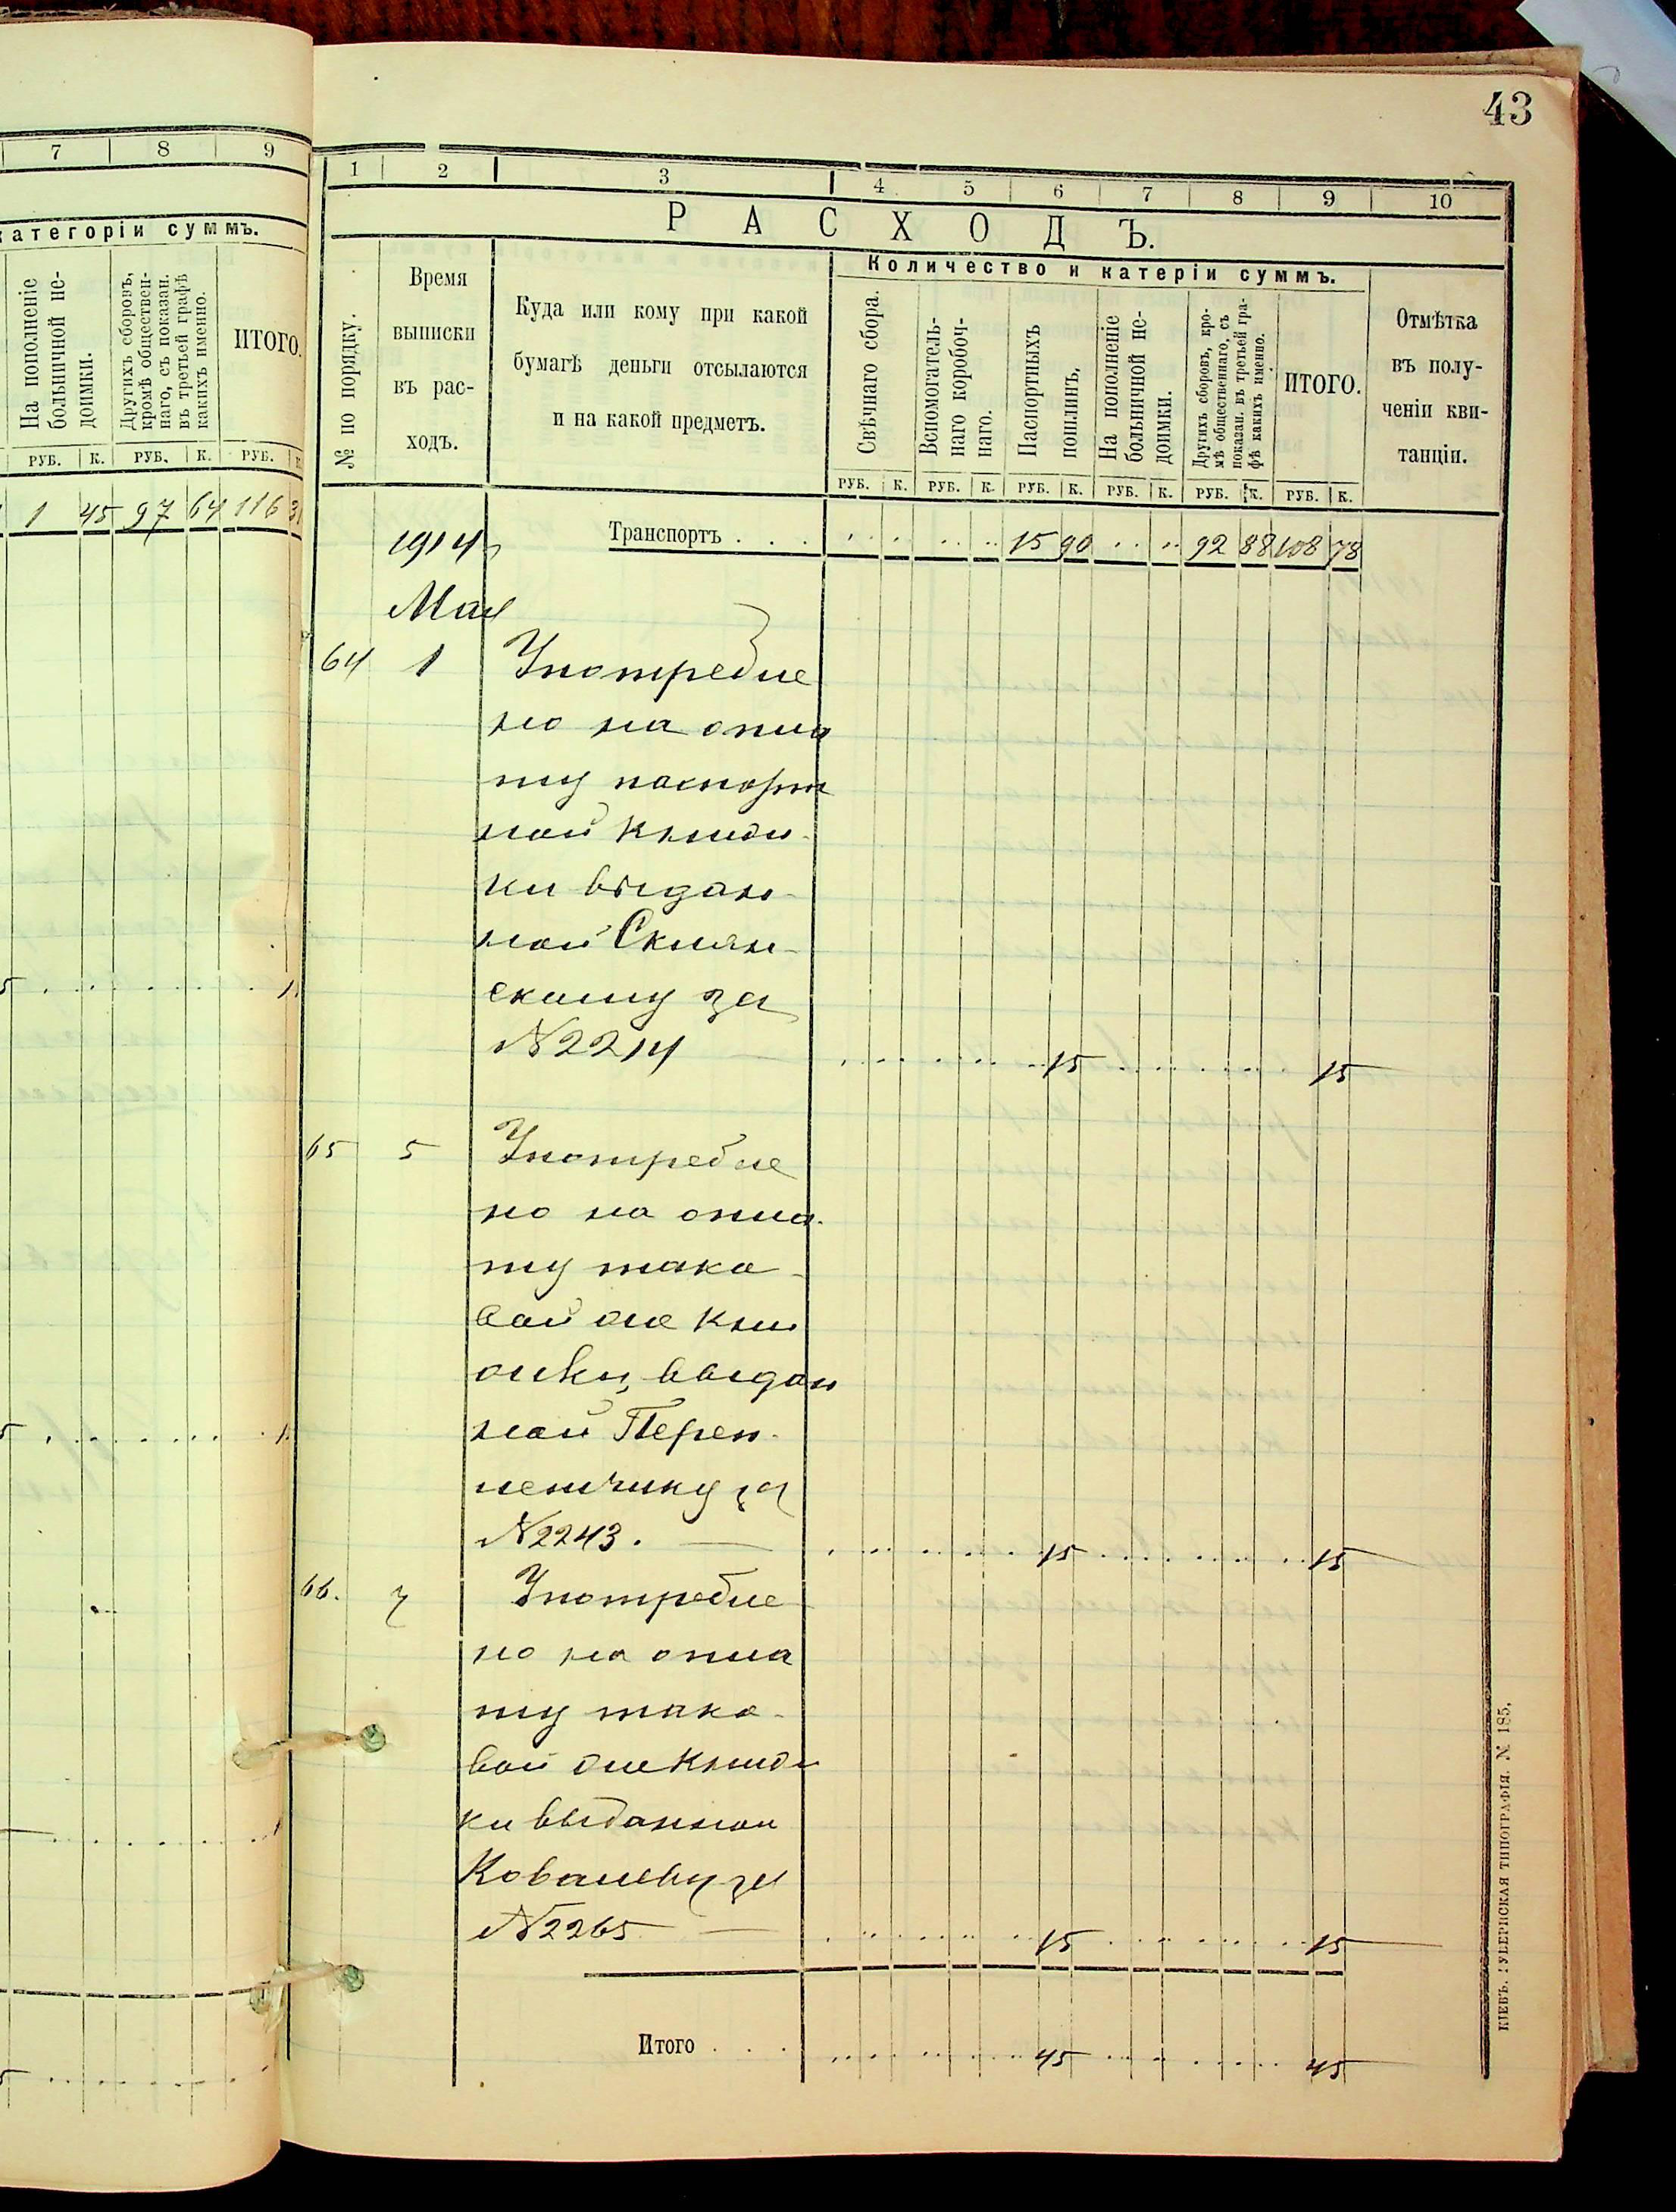 43
7 8 9
категоріи суммъ.
На пополненіе
больничной не-
доимки.
Другихъ сборовъ,
кромѣ обществен-
наго, съ показан.
въ третьей графѣ
какихъ именно.
ИТОГО.
РУБ. К. РУБ. К. РУБ.
1 45 97 64 116 31
1 2 3 4 5 6 7 8 9 10
РАСХОДЪ.
№ по порядку.
Время
выписки
въ рас-
ходъ.
Куда или кому при какой
бумагѣ деньги отсылаются
и на какой предметъ.
Количество и катеріи суммъ.
Свѣчнаго сбора.
Вспомогатель-
наго коробоч-
наго.
Паспортныхъ
пошлинъ.
На пополненіе
больничной не-
доимки.
Другихъ сборовъ, кро-
мѣ общественнаго, съ
показан. въ третьей гра-
фѣ какихъ именно.
ИТОГО.
Отмѣтка
въ полу-
ченіи кви-
танціи.
РУБ. К. РУБ. К. РУБ. К. РУБ. К. РУБ. К. РУБ. К.
1914 Транспортъ . . . 15 90 92 88 108 78
Мая
64 1 Употребле
но на опла
ту паспорт
ной книж-
ки выдан-
ной
скому за
N2214 — 15 15
65 5 Употребле
но на опла-
ту тако-
вой же кни
жки, выдан
ной Перен-
за
N2243. — 15 15
66. 7 Употребле
но на опла
ту тако-
вой же книж
ки выданной
Ковалеву за
N2265 — 15 15
Итого . . . 45 45
КІЕВЪ. ГУБЕРНСКАЯ ТИПОГРАФІЯ. N 185.